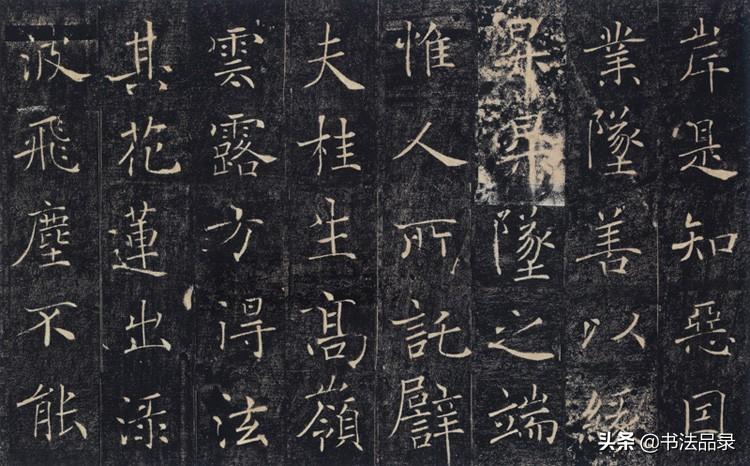 岸是知惡因
業墜善以緣
昇昇墜之端
惟人所託譬
夫桂生髙嶺
雲露方得泫
其花蓮出淥
波飛塵不能
头条 @书法品录